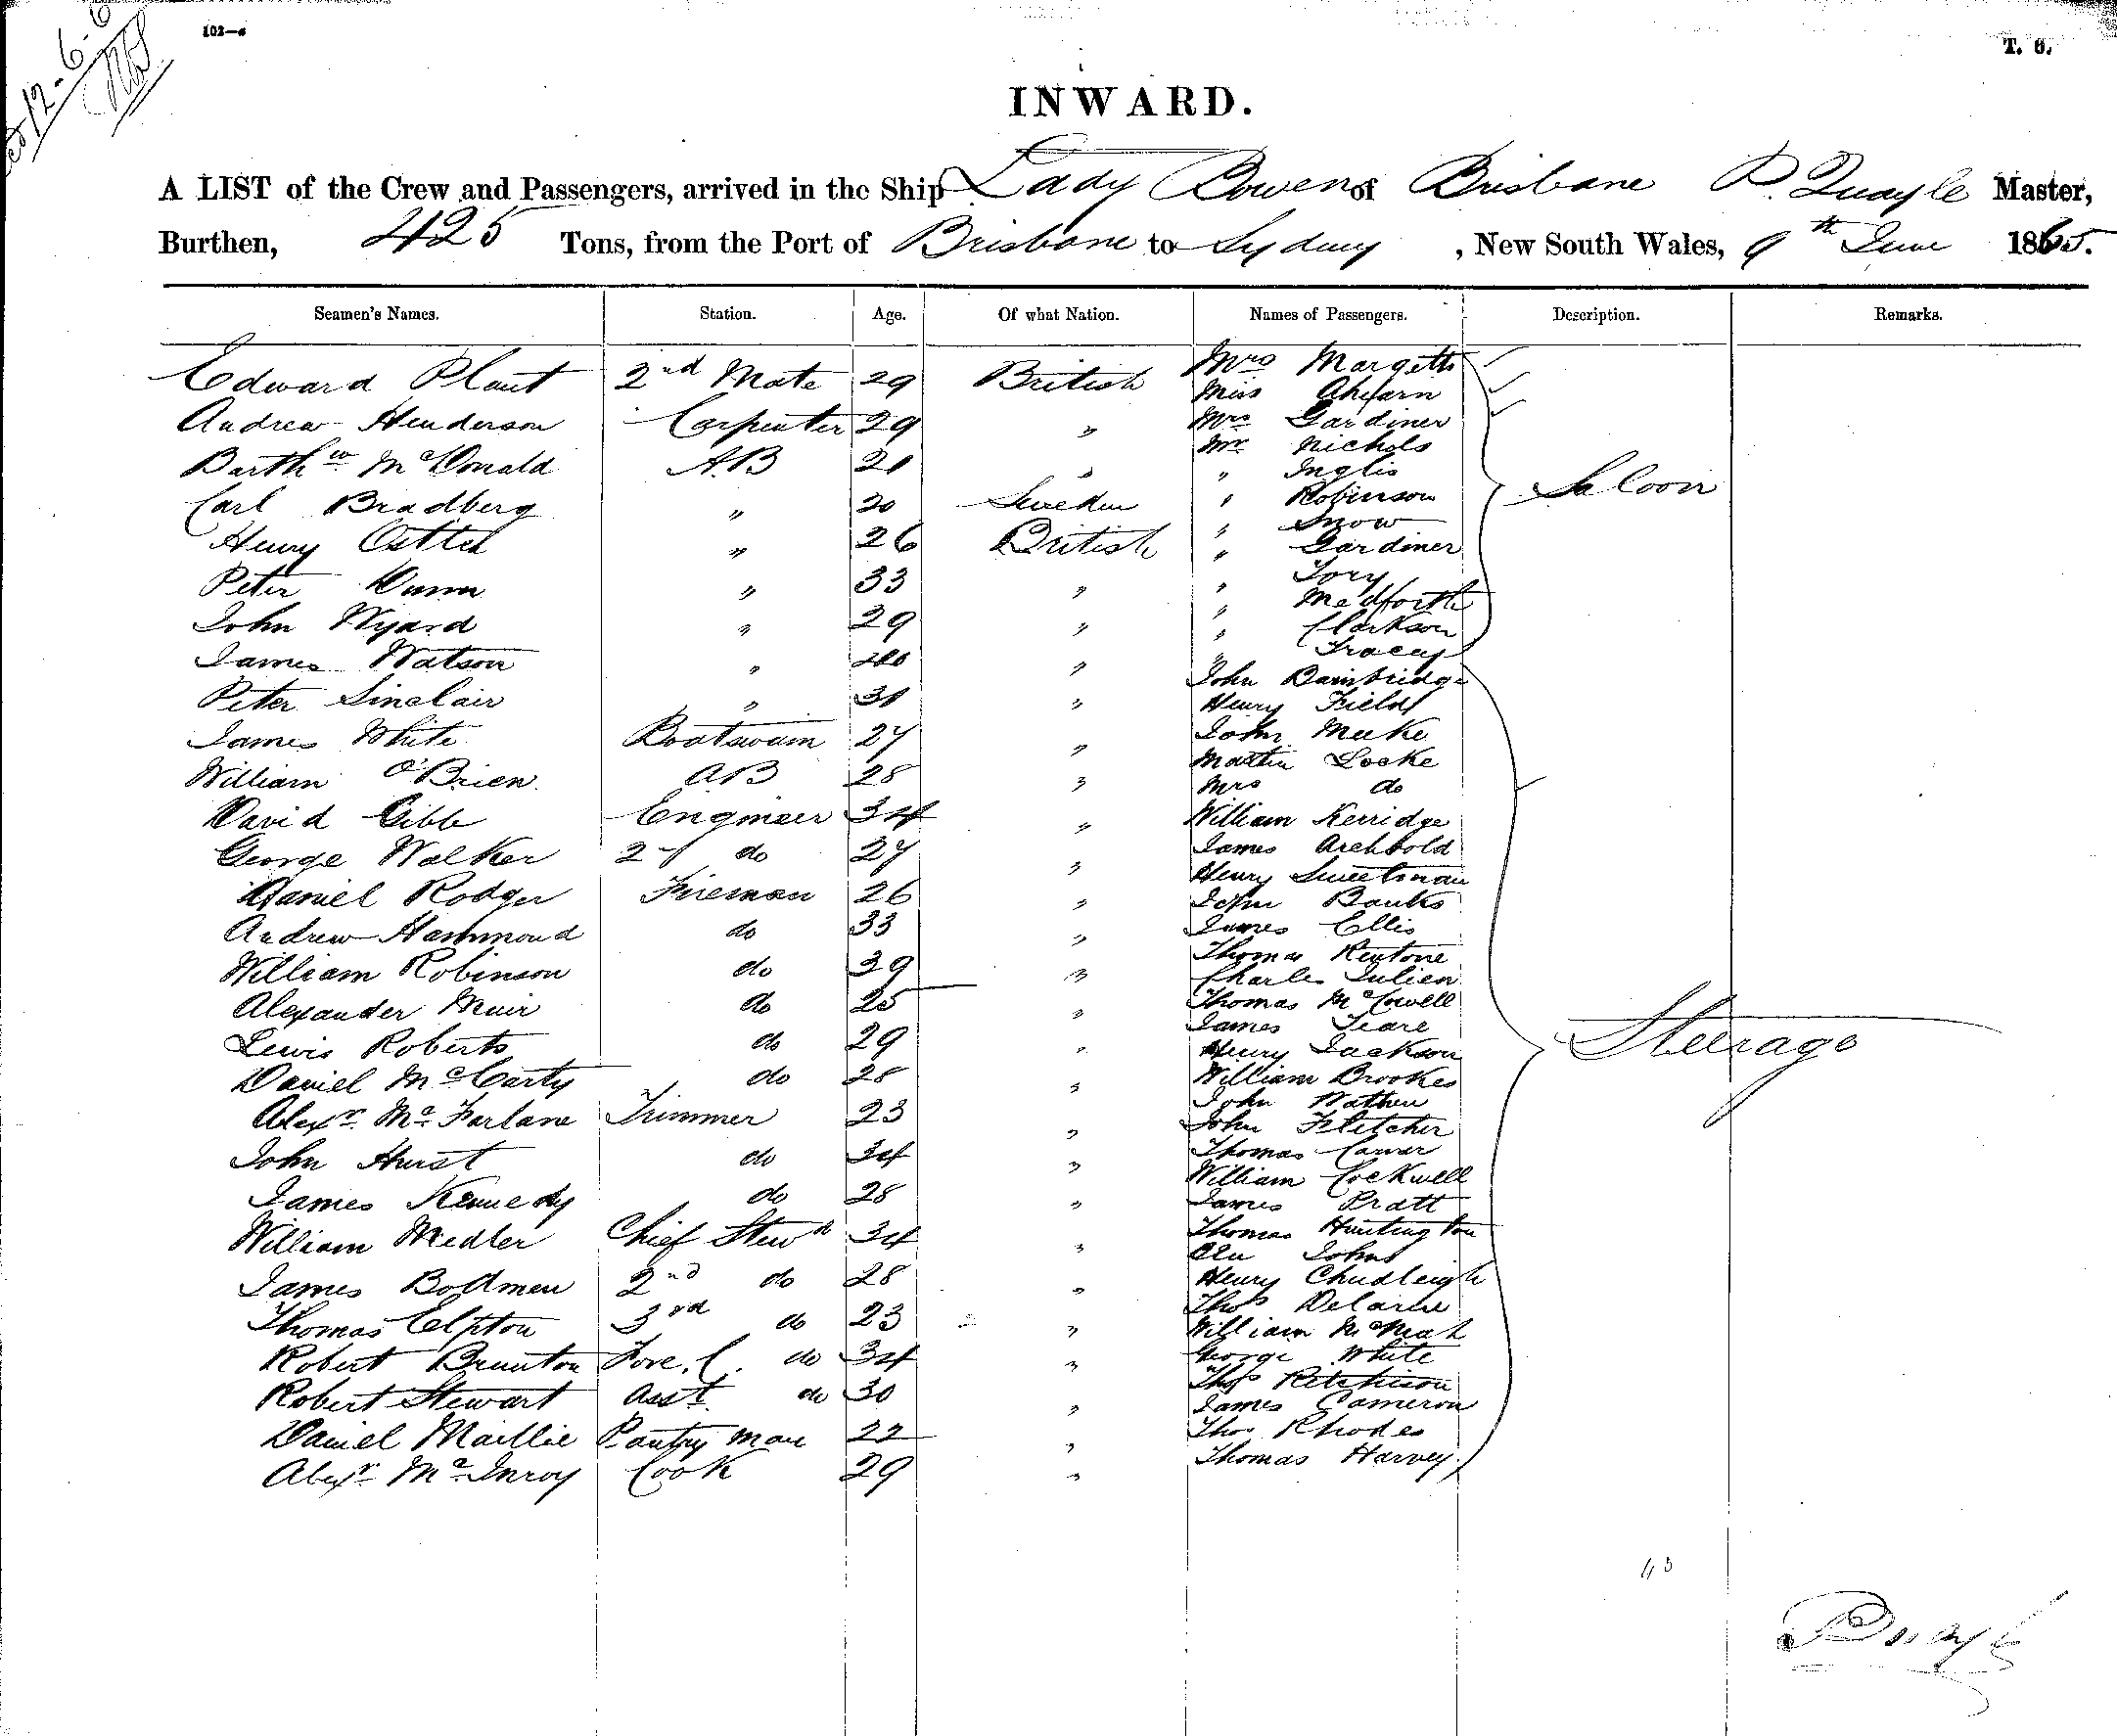 12-6-6
102—
T. 6.
INWARD.
A LIST of the Crew and Passengers, arrived in the Ship Lady Bowen of Brisbane P. Quayle Master,
Burthen, 425 Tons, from the Port of Brisbane to Sydney, New South Wales, 9th June 1865.
Seamen's Names. Station. Age. Of what Nation. Names of Passengers. Description. Remarks.
Mrs Margetts
Edward Plant 2nd Mate 29 British
Miss Ahearn
Andrew Henderson Carpenter 29 "
Mrs Gardiner
Mr Nichols
Barthw McDonald A.B 21 "
" Inglis
Saloon
Carl Bradberg " 20 Sweeden
" Robinson
" Snow
Henry " 26 British
" Gardiner
" Tory
Peter Dunn " 33 "
" Medforth
John Wyard " 29 "
" Clarkson
" Tracey
James Watson " "
John Bainbridge
Peter Sinclair " 31 "
Henry Field
James White Boatswain 27 "
John Meeke
Martin Locke
William O'Brien AB 28 "
Mrs do
David Gibb Engineer 34 "
William Kerridge
George Walker 2nd do 27 "
James Archbold
Henry Sweetman
Daniel Rodger Fireman 26 "
John Banks
Andrew Hammond do 33 "
James Ellis
Thomas
William Robinson do 39 "
Charles Julien
Alexander Muir do 25 "
Thomas McCowell
James Teare
Lewis Roberts do 29 "
Henry Jackson
Steerage
Daniel McCarty do 28 "
William Brookes
John
Alexr McFarlane Trimmer 23 "
John Fletcher
Thomas Carver
John Hurst do 34 "
William Cockwell
James Kennedy do 28 "
James Pratt
William Medler Chief Stewd 34 "
Thomas Huntington
Johns
James Bodmen 2nd do 28 "
Henry Chudleigh
Thos Delarue
Thomas Elpton 3rd do 23 "
William
Robert Brunton Fore. C. do 34 "
George White
Thos Retchison
Robert Stewart Asst do 30 "
James Cameron
Daniel Maillie Pantry man 22 "
Thos Rhodes
Thomas Harvey
Alexr McInroy Cook 29 "
43
P Quayle